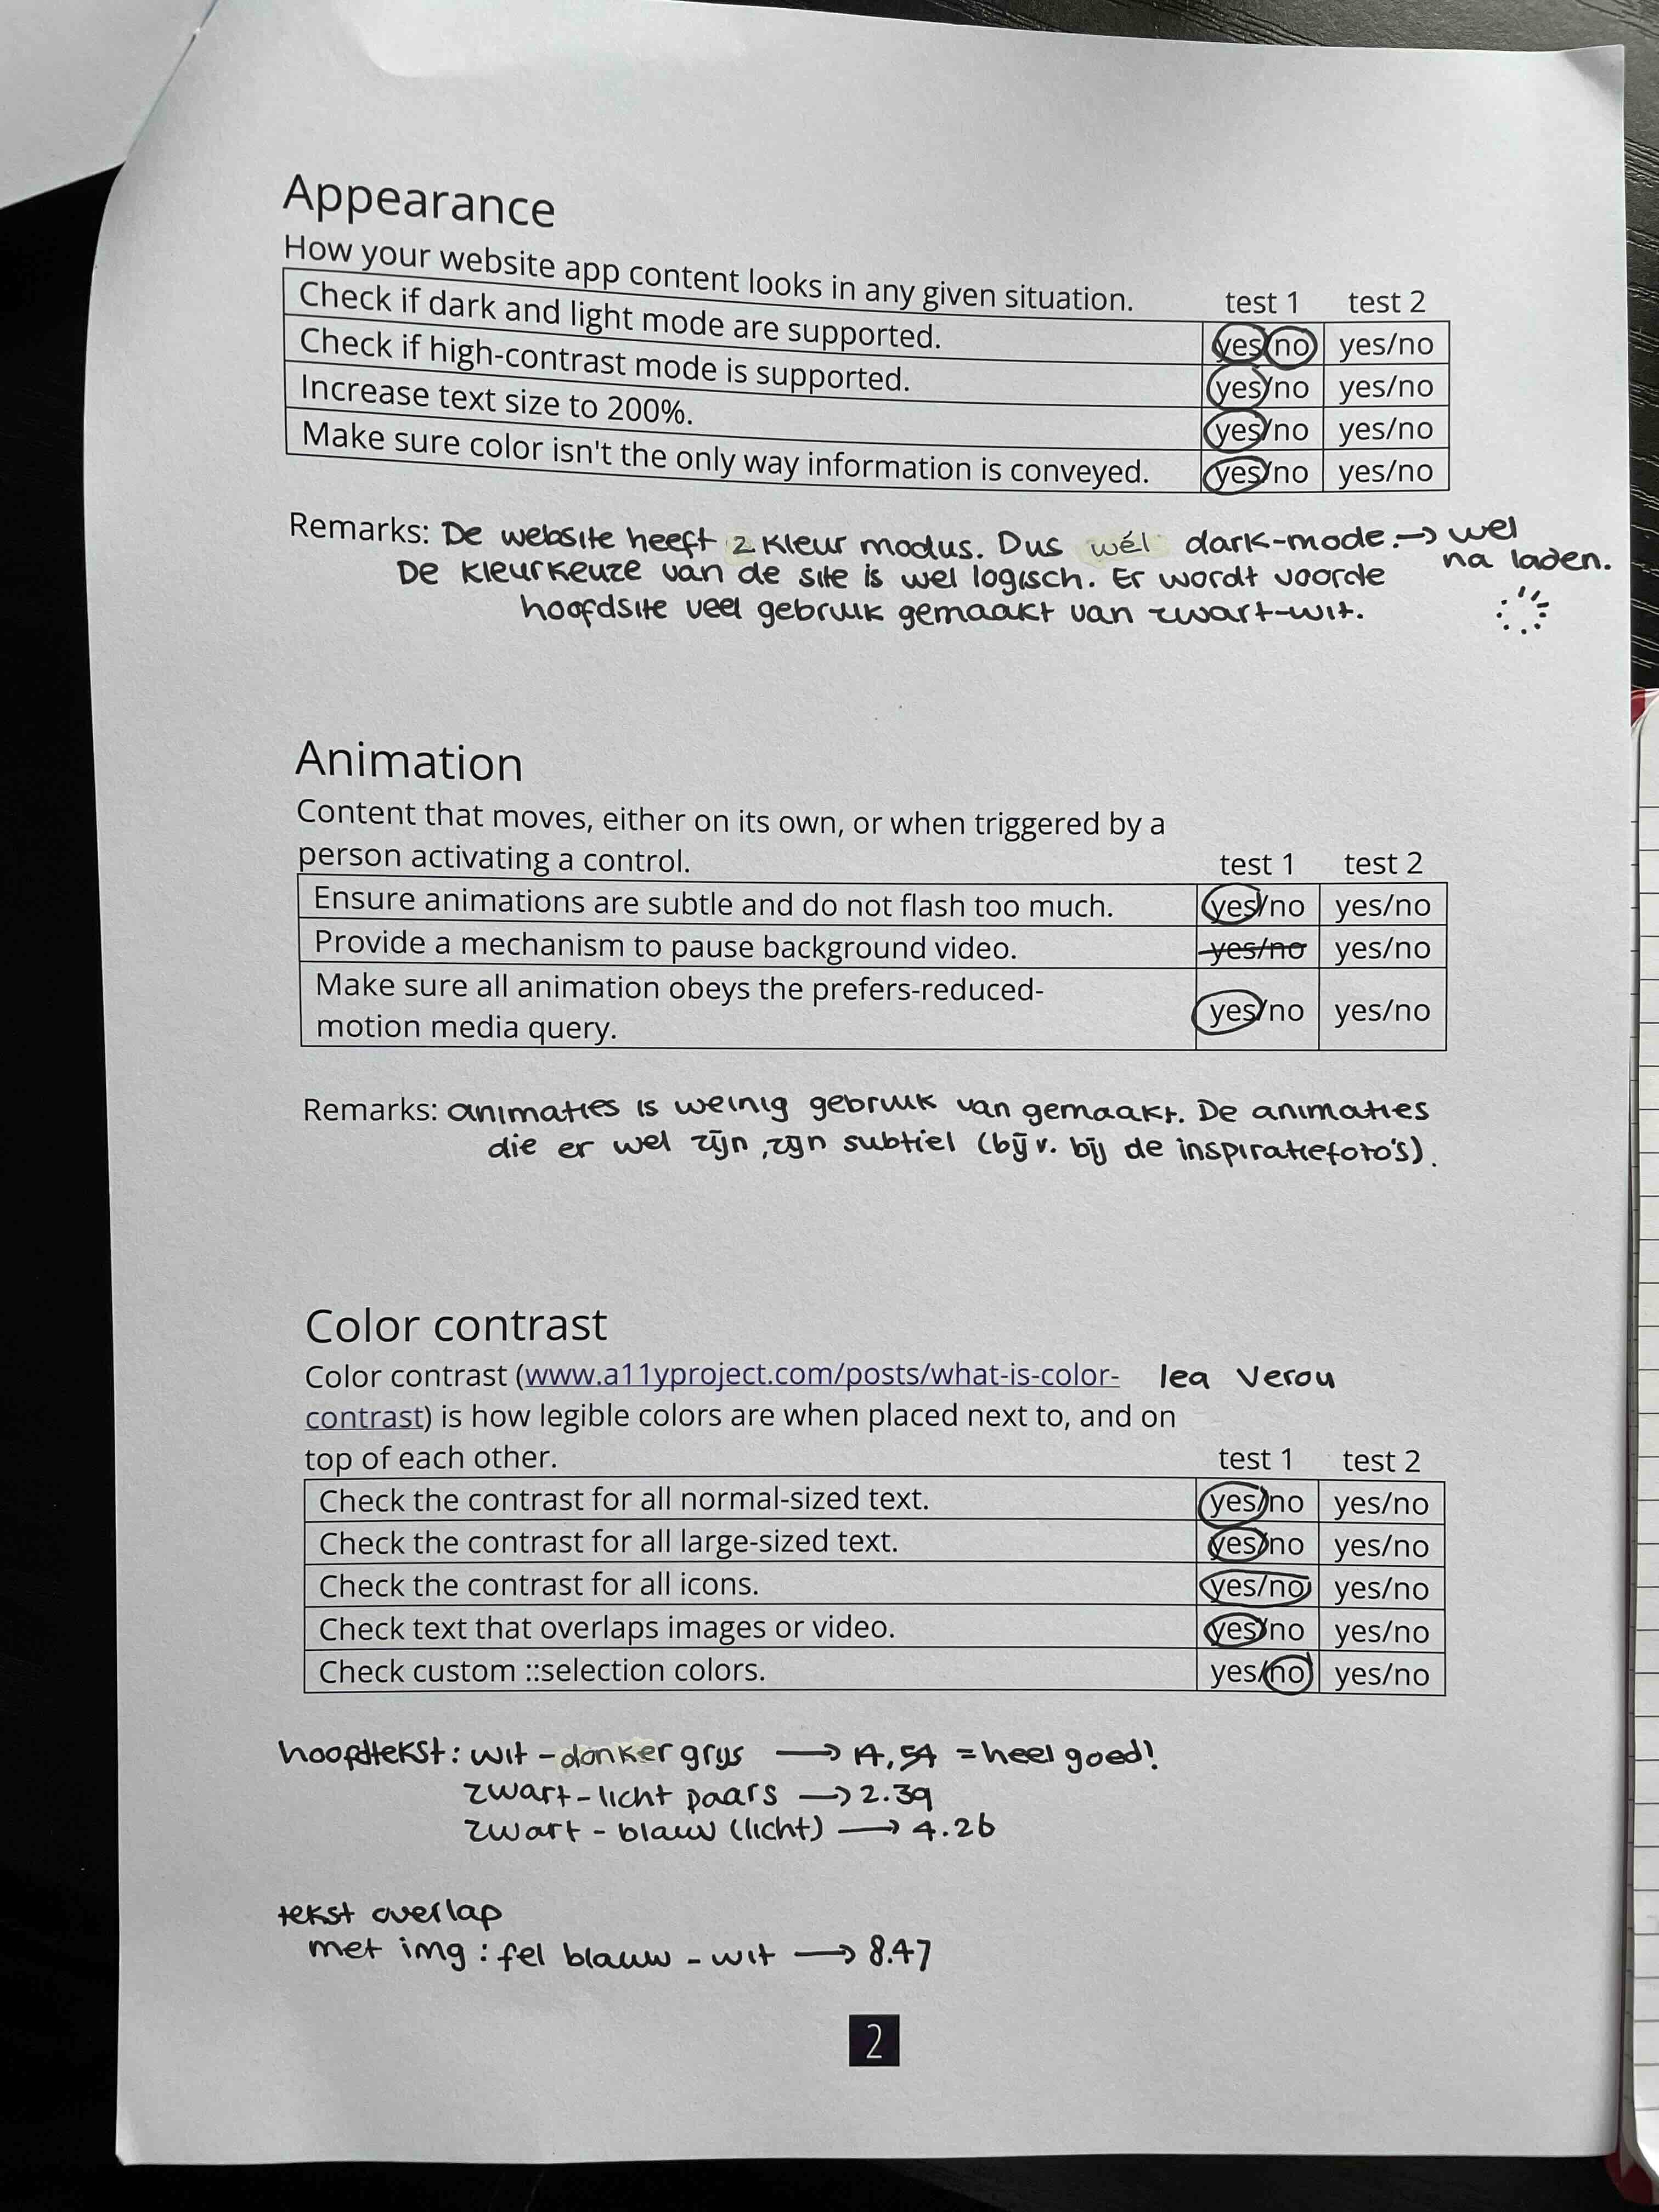 Appearance
How your website app content looks in any given situation. test 1 test 2
Check if dark and light mode are supported. yes/no yes/no
Check if high-contrast mode is supported. yes/no yes/no
Increase text size to 200%. yes/no yes/no
Make sure color isn't the only way information is conveyed. yes/no yes/no
Remarks: De website heeft 2 kleur modus. Dus wél dark-mode. → wel
na laden.
De kleurkeuze van de site is wel logisch. Er wordt voorde
hoofdsite veel gebruik gemaakt van zwart-wit.
Animation
Content that moves, either on its own, or when triggered by a
person activating a control. test 1 test 2
Ensure animations are subtle and do not flash too much. yes/no yes/no
Provide a mechanism to pause background video. yes/no yes/no
Make sure all animation obeys the prefers-reduced-
motion media query. yes/no yes/no
Remarks: animaties is weinig gebruik van gemaakt. De animaties
die er wel zijn, zijn subtiel (bijv. bij de inspiratiefoto's).
Color contrast
Color contrast (www.a11yproject.com/posts/what-is-color- lea Verou
contrast) is how legible colors are when placed next to, and on
top of each other. test 1 test 2
Check the contrast for all normal-sized text. yes/no yes/no
Check the contrast for all large-sized text. yes/no yes/no
Check the contrast for all icons. yes/no yes/no
Check text that overlaps images or video. yes/no yes/no
Check custom ::selection colors. yes/no yes/no
hoofdtekst: wit - donker grijs → 14,54 = heel goed!
zwart - licht paars → 2.39
zwart - blauw (licht) → 4.26
tekst overlap
met img: fel blauw - wit → 8.47
2